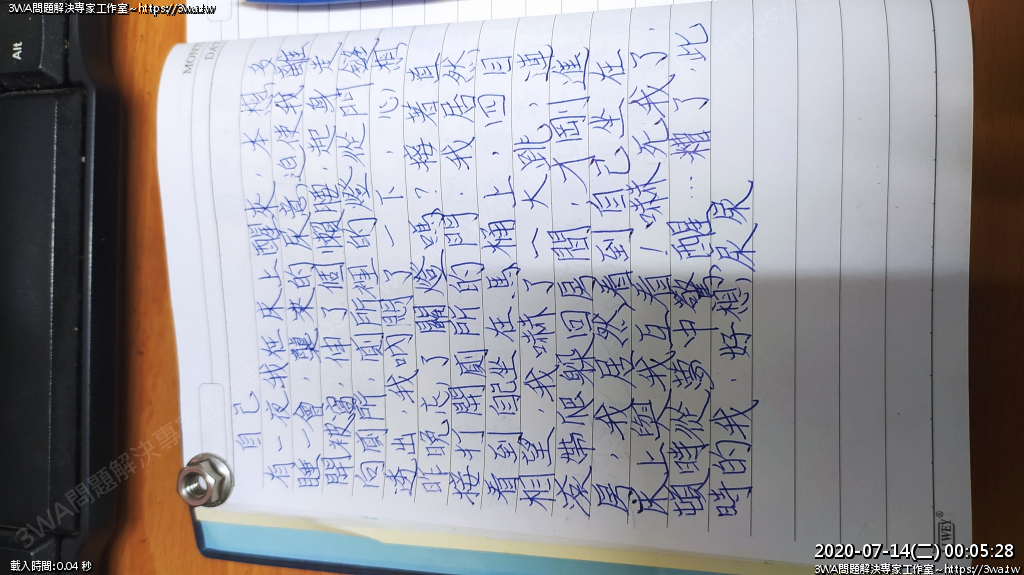 3WA問題解決專家工作室~https://3wa.tw
MON
DA
自己
有一夜我在床上醒來,本想多
睡一會,襲來的尿意迫使我離
開被窩,伸了個懶腰,起身走
向廁所,廁所裡的燈從門縫
透出,我叩了一下,心想
昨晚忘了關燈嗎?接著直
接打開廁所的門,我居然
看到自己坐在馬桶上,四目
相望,我嚇了一大跳,連
滾帶爬躲回房間,才剛進
房,我居然看到自己坐在
床上與我互看!嚇死我了,
頓時從夢中驚醒...糟了,此
時的我,好想尿尿
WEY®
Alt
載入時間:0.04 秒
2020-07-14(二) 00:05:28
3WA問題解決專家工作室~https://3wa.tw